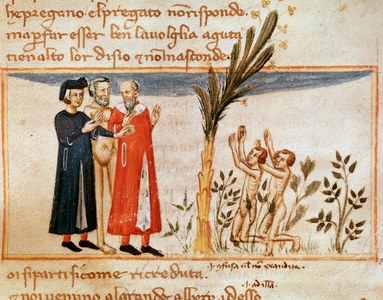 he pregano el pregato nō risponde.
ma p far esser bē la uoglia aguta
tien alto lor disio & nol nasconde.
oi si parti si come ricreduta.
noi uenimo al grande albero adesso